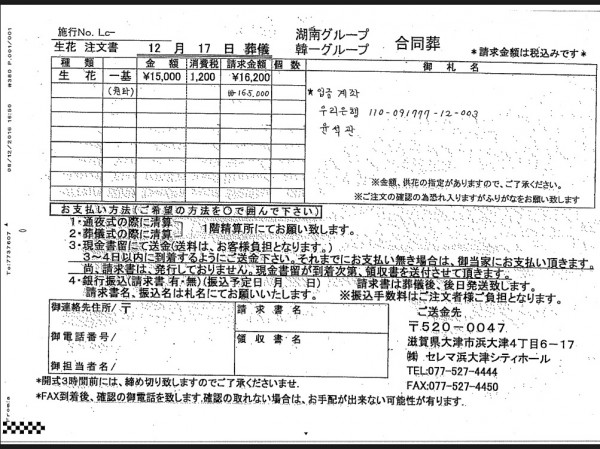 施行No. Lc-
生花 注文書 12 月 17 日 葬儀
湖南グループ
韓一グループ 合同葬
*請求金額は税込みです*
種 類 金 額 消費税 請求金額 個 数 御 札 名
生 花 一基 ¥15,000 1,200 ¥16,200
₩165,000
* 입금 계좌
우리은행 110-091777-12-003
윤석관
※金額、供花の指定がありますので、ご了承ください。
※ご注文の確認の為恐れ入りますがふりがなをお願い致します
お支払い方法(ご希望の方法を○で囲んで下さい)
1・通夜式の際に清算
2・葬儀式の際に清算
1階精算所にてお願い致します。
3・現金書留にて送金(送料は、お客様負担となります。)
3~4日以内に到着するようにご送金下さい。それまでにお支払い無き場合は、御当家にお支払い頂きます。
尚、請求書は、発行しておりません。現金書留が到着次第、領収書を送付させて頂きます。
4・銀行振込(請求書 有・無)(振込予定日 月 日) 請求書は葬儀後、後日発送致します。
請求書名、振込名は札名にてお願いいたします。 ※振込手数料はご注文者様ご負担となります。
御連絡先住所/〒
請 求 書 名
御電話番号/
領 収 書 名
御担当者名/
ご送金先
〒520-0047
滋賀県大津市浜大津4丁目6-17
㈱ セレマ浜大津シティホール
TEL:077-527-4444
FAX:077-527-4450
*開式3時間前には、締め切り致しますのでご了承くださいませ。
*FAX到着後、確認の御電話を致します.確認の取れない場合は、お手配が出来ない可能性が有ります.